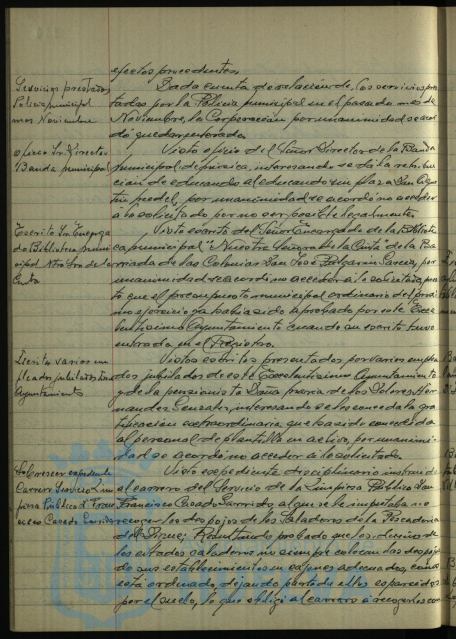 efectos procedentes.
Servicios prestados
Policia municipal
mes Noviembre
Dada cuenta de relación de los servicios pres-
tados por la Policia municipal en el pasado mes de
Noviembre, la Corporación por unanimidad se acor-
dó quedar enterada.
Oficio Sr. Director
Banda municipal
Visto oficio del Señor Director de la Banda
municipal de música, interesando se dé la retribu-
ción de educando al educando sin plaza
se acordó no acceder
a lo solicitado por no ser posible legalmente.
Escrito Sr. Encarga-
do Biblioteca muni-
cipal Ntra Sra de la
Visto escrito del Señor Encargado de la Bibliote-
ca municipal "Nuestra Señora de la" de la Ba-
rriada de las Colonias San José
unanimidad se acordó no acceder a lo solicitado, pues-
to que el presupuesto municipal ordinario del próxi-
mo ejercicio ya había sido aprobado por este Exce-
lentísimo Ayuntamiento cuando su escrito tuvo
entrada en el Registro.
Escritos varios em-
pleados jubilados
Ayuntamiento
Vistos escritos presentados por varios emplea-
dos jubilados de este Excelentísimo Ayuntamiento
y de la pensionista Doña María de los Dolores Her-
nandez, interesando se les conceda la gra-
tificación extraordinaria que ha sido concedida
al personal de plantilla en activo, por unanimi-
dad se acordó no acceder a lo solicitado.
Sobreseer expediente
Carrero Servicio Lim-
pieza Pública D. Fran-
cisco Casado Garrido
Visto expediente disciplinario instruido
al carrero del Servicio de la Limpieza Pública Don
Francisco Casado Garrido, al que se le imputaba no
recoger los despojos de los Saladores de la Pescadería
del; Resultando probado que los dueños de
los citados saladores no siempre colocan los despojos
de sus establecimientos en cajones adecuados, como
está ordenado, dejando parte de ellos esparcidos
por el suelo, lo que obligó al carrero a recogerlos con